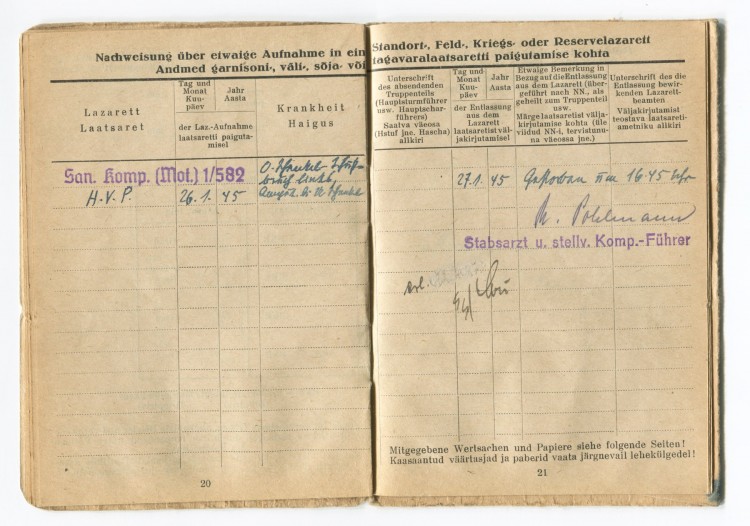 Nachweisung über etwaige Aufnahme in ein
Andmed garnisoni-, väli-, sõja- või
Lazarett
Laatsaret
Tag und
Monat
Kuu-
päev
Jahr
Aasta
der Laz.-Aufnahme
laatsaretti paiguta-
misel
Krankheit
Haigus
San. Komp. (Mot.) 1/582
H.V.P.
26.1. 45
O.
links,
20
Standort-, Feld-, Kriegs- oder Reservelazarett
tagavaralaatsaretti paigutamise kohta
Unterschrift
des absendenden
Truppenteils
(Hauptsturmführer
usw. Hauptschar-
führers)
Saatva väeosa
(Hstuf jne. Hascha)
allkiri
Tag und
Monat
Kuu-
päev
Jahr
Aasta
der Entlassung
aus dem
Lazarett
laatsaretist väl-
jakirjutamisel
Etwaige Bemerkung in
Bezug auf die Entlassung
aus dem Lazarett (über-
geführt nach NN., als
geheilt zum Truppenteil
usw.
Märge laatsaretist välja-
kirjutamise kohta (üle
viidud NN-i, tervistunu-
na väeossa jne.)
Unterschrift des die
Entlassung bewir-
kenden Lazarett-
beamten
Väljakirjutamist
teostava laatsareti-
ametniku allkiri
27.1. 45 Gestorben um 16.45 Uhr
Pohlmann
Stabsarzt u. stellv. Komp.-Führer
erl.
Mitgegebene Wertsachen und Papiere siehe folgende Seiten!
Kaasaantud väärtasjad ja paberid vaata järgnevail lehekülgedel!
21